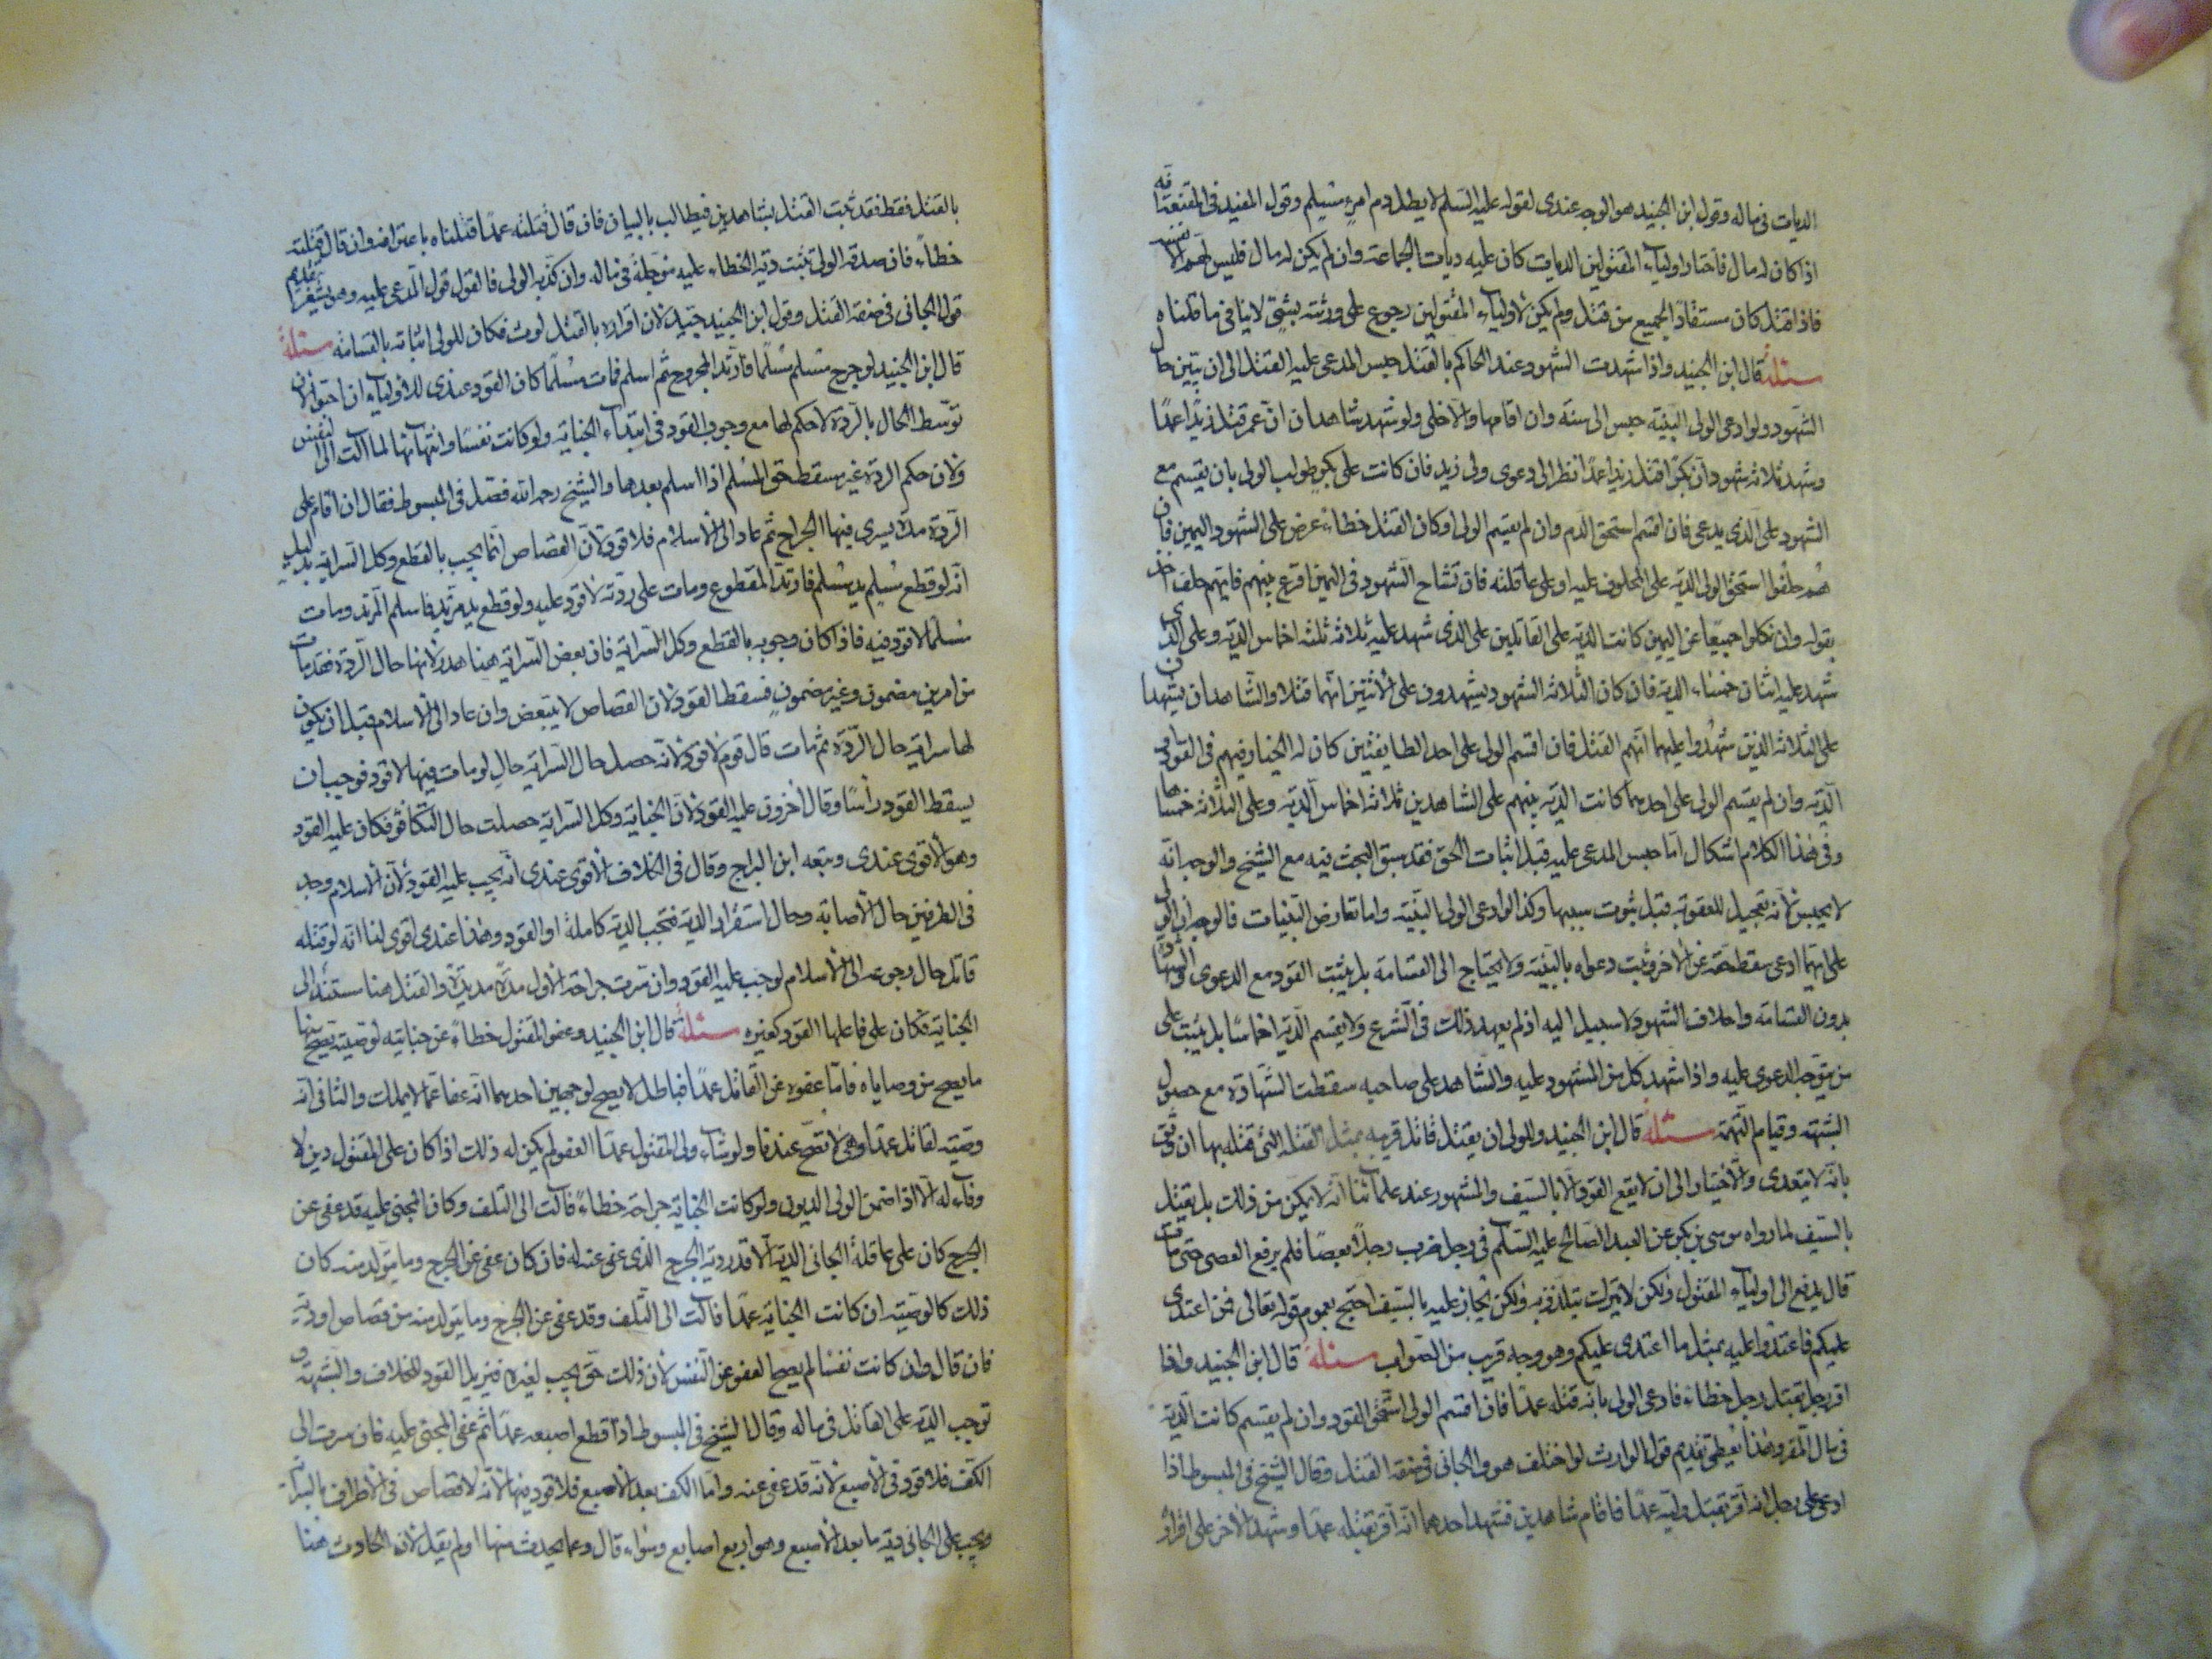 الديات فى ماله وقول ابن الجنيد هو الوجه عندى لقوله عليه السلم لا يطل دم امرء مسلم وقول المفيد فى المقنعة انه
اذا كان له مال فاختار اولياء المقتولين الديات كان عليه ديات الجماعة وان لم يكن له مال فليس لهم الا نفسه
فاذا قتل كان مستفادا لجميع من قتل ولم يكن لاولياء المقتولين رجوع على ورثته بشئ لا ينافى ما قلناه
مسئلة قال ابن الجنيد واذا شهدت الشهود عند الحاكم بالقتل حبس المدعى عليه القتل الى ان يتبين حال
الشهود ولو ادعى الولى البينة حبس الى سنة وان اقامها والا خلى ولو شهد شاهدان ان عمر قتل زيدا عمدا
وشهد ثلاثة شهود ان بكرا قتل زيدا عمدا نظر الى دعوى ولى زيد فان كانت على بكر طولب الولى بان يقسم مع
الشهود على الذى يدعى فان اقسم استحق الدم وان لم يقسم الولى او كان القتل خطاء عرض على الشهود اليمين فان
هم حلفوا استحق الولى الدية على المحلوف عليه او على عاقلته فان تشاح الشهود فى اليمين اقرع بينهم فايهم حلف اخذ
بقوله وان نكلوا جميعا عن اليمين كانت الدية على القاتلين على الذى شهد عليه ثلاثة ثلثه اخماس الدية وعلى الذى
شهد عليه اثنان خمساء الدية فان كان الثلاثة الشهود يشهدون على الاثنين انهما قتلا والشاهدان يشهدان
على الثلاثة الذين شهدوا عليهما انهم القتل فان اقسم الولى على احد الطايفتين كان له الخيار فيهم فى القود او
الدية وان لم يقسم الولى على احدهما كانت الدية بينهم على الشاهدين ثلاثة اخماس الدية وعلى الثلاثة خمساها
وفى هذا الكلام اشكال اما حبس المدعى عليه قبل اثبات الحق فقد سبق البحث فيه مع الشيخ والوجه انه
لا يحبس لانه تعجيل للعقوبة قبل ثبوت سببها وكذا لو ادعى الولى البينة واما تعارض البينات فالوجه ان الولى
على ايهما ادعى سقط حقه عن الاخر وثبت دعواه بالبينة ولا يحتاج الى القسامة بل يثبت القود مع الدعوى
بدون القسامة واحلاف الشهود لا سبيل اليه اذ لم يعهد ذلك فى الشرع ولا يقسم الدية اخماسا بل يثبت على
من يتوجه الدعوى عليه واذا شهد كل من المشهود عليه والشاهد على صاحبه سقطت الشهادة مع حصول
الشبهة وقيام التهمة مسئلة قال ابن الجنيد وللولى ان يقتل قاتل قريبه بمثل القتلة التى قتله بها ان وثق
بانه لا يتعدى والاختيار الى ان لا يقع القود الا بالسيف والمشهور عند علمائنا انه لا يمكن من ذلك بل يقتل
بالسيف لما رواه موسى بن بكر عن العبد الصالح عليه السلم فى رجل ضرب رجلا بعصا فلم يرفع العصى حتى مات
قال يدفع الى اولياء المقتول ولكن لا يترك يتلذذ به ولكن يجاز عليه بالسيف احتج بعموم قوله تعالى فمن اعتدى
عليكم فاعتدوا عليه بمثل ما اعتدى عليكم وهو وجه قريب من الصواب مسئلة قال ابن الجنيد واذا
اقر رجل بقتل رجل خطاء فادعى الولى بانه قتله عمدا فان اقسم الولى استحق القود وان لم يقسم كانت الدية
فى مال المقر وهذا يعطى تقديم قول الوارث لو اختلف هو والجانى فى صفة القتل وقال الشيخ فى المبسوط اذا
ادعى على رجل انه اقر بقتل وليه عمدا فاقام شاهدين فشهد احدهما انه اقر بقتله عمدا وشهد الاخر على اقراره
بالقتل فقط فقد ثبت القتل بشاهدين فيطالب بالبيان فان قال قتلته عمدا قتلناه باعترافه وان قال قتلته
خطاء فان صدقه الولى تثبت دية الخطاء عليه مؤجلة فى ماله وان كذبه الولى فالقول قول المدعى عليه وهو يشعر بتقديم
قول الجانى فى صفة القتل وقول ابن الجنيد جيد لان اقراره بالقتل لوث فكان للولى اثباته بالقسامة مسئلة
قال ابن الجنيد لو جرح مسلم مسلما فارتد المجروح ثم اسلم فمات مسلما كان القود عندى للاولياء ان احتووا لان
توسط الحال بالردة لا حكم لها مع وجوب القود فى ابتداء الجناية ولو كانت نفسا وانتهائها لما الت الى النفس
ولان حكم الردة غير مسقط حق المسلم اذا اسلم بعدها والشيخ رحمه الله فصل فى المبسوط فقال ان اقام على
الردة مدة يسرى فيها الجراح ثم عاد الى الاسلام فلا قود لان القصاص انما يجب بالقطع وكل السراية بدليل
انه لو قطع مسلم يد مسلم فارتد المقطوع ومات على ردته لا قود عليه ولو قطع يد مرتد فاسلم المرتد ومات
مسلما لا قود فيه فاذا كان وجوبه بالقطع وكل السراية فان بعض السراية هنا هدر لانها حال الردة فقد مات
من امرين مضمون وغير مضمون فسقط القود لان القصاص لا يتبعض وان عاد الى الاسلام قبل ان يكون
لها سراية حال الردة ثم مات قال قوم لا قود لانه حصل حال السراية حال لو مات فيها لا قود فوجب ان
يسقط القود راسا وقال اخرون عليه القود لان الجناية وكل السراية حصلت حال التكافؤ فكان عليه القود
وهو الاقوى عندى وتبعه ابن البراج وقال فى الخلاف الاقوى عندى انه يجب عليه القود لان الاسلام وجد
فى الطرفين حال الاصابة وحال استقرار الدية فتجب الدية كاملة او القود وهذا عندى اقوى لنا انه لو قتله
قاتل حال رجوعه الى الاسلام لوجب عليه القود وان سرت جراحة الاول مدة مديدة والقتل هنا مستند الى
الجناية فكان على فاعلها القود كغيره مسئلة قال ابن الجنيد وعفو المقتول خطاء عن جنايته لو صيته يصح منها
ما يصح من وصاياه فاما عفوه عن القاتل عمدا فباطل لا يصح لوجهين احدهما انه عفا عما لا يملك والثانى انه
وصية لقاتل عمدا وهى لا تصح عندنا ولو شاء ولى المقتول عمدا العفو لم يكن له ذلك اذا كان على المقتول دين لا
وفاء له الا اذا ضمن الولى الديون ولو كانت الجناية جراحة خطاء فالت الى التلف وكان المجنى عليه قد عفى عن
الجرح كان على عاقلة الجانى الدية الا قدر دية الجرح الذى عفى عنه له فان كان عفى عن الجرح وما يتولد منه كان
ذلك كالوصية ان كانت الجناية عمدا فالت الى التلف وقد عفى عن الجرح وما يتولد منه من قصاص او دية
فان قال وان كانت نفسا لم يصح العفو عن النفس لان ذلك حق يجب لغيره فيزيل القود للخلاف والشبهة و
توجب الدية على القاتل فى ماله وقال الشيخ فى المبسوط اذا قطع اصبعه عمدا ثم عفى المجنى عليه فان سرت الى
الكف فلا قود فى الاصبع لانه قد عفى عنه واما الكف بعد الاصبع فلا قود فيها لانه لا قصاص فى الاطراف بالسراية
ويجب على الجانى دية ما بعد الاصبع وهو اربع اصابع وسواء قال وعما يحدث منها او لم يقل لان الحادث هنا